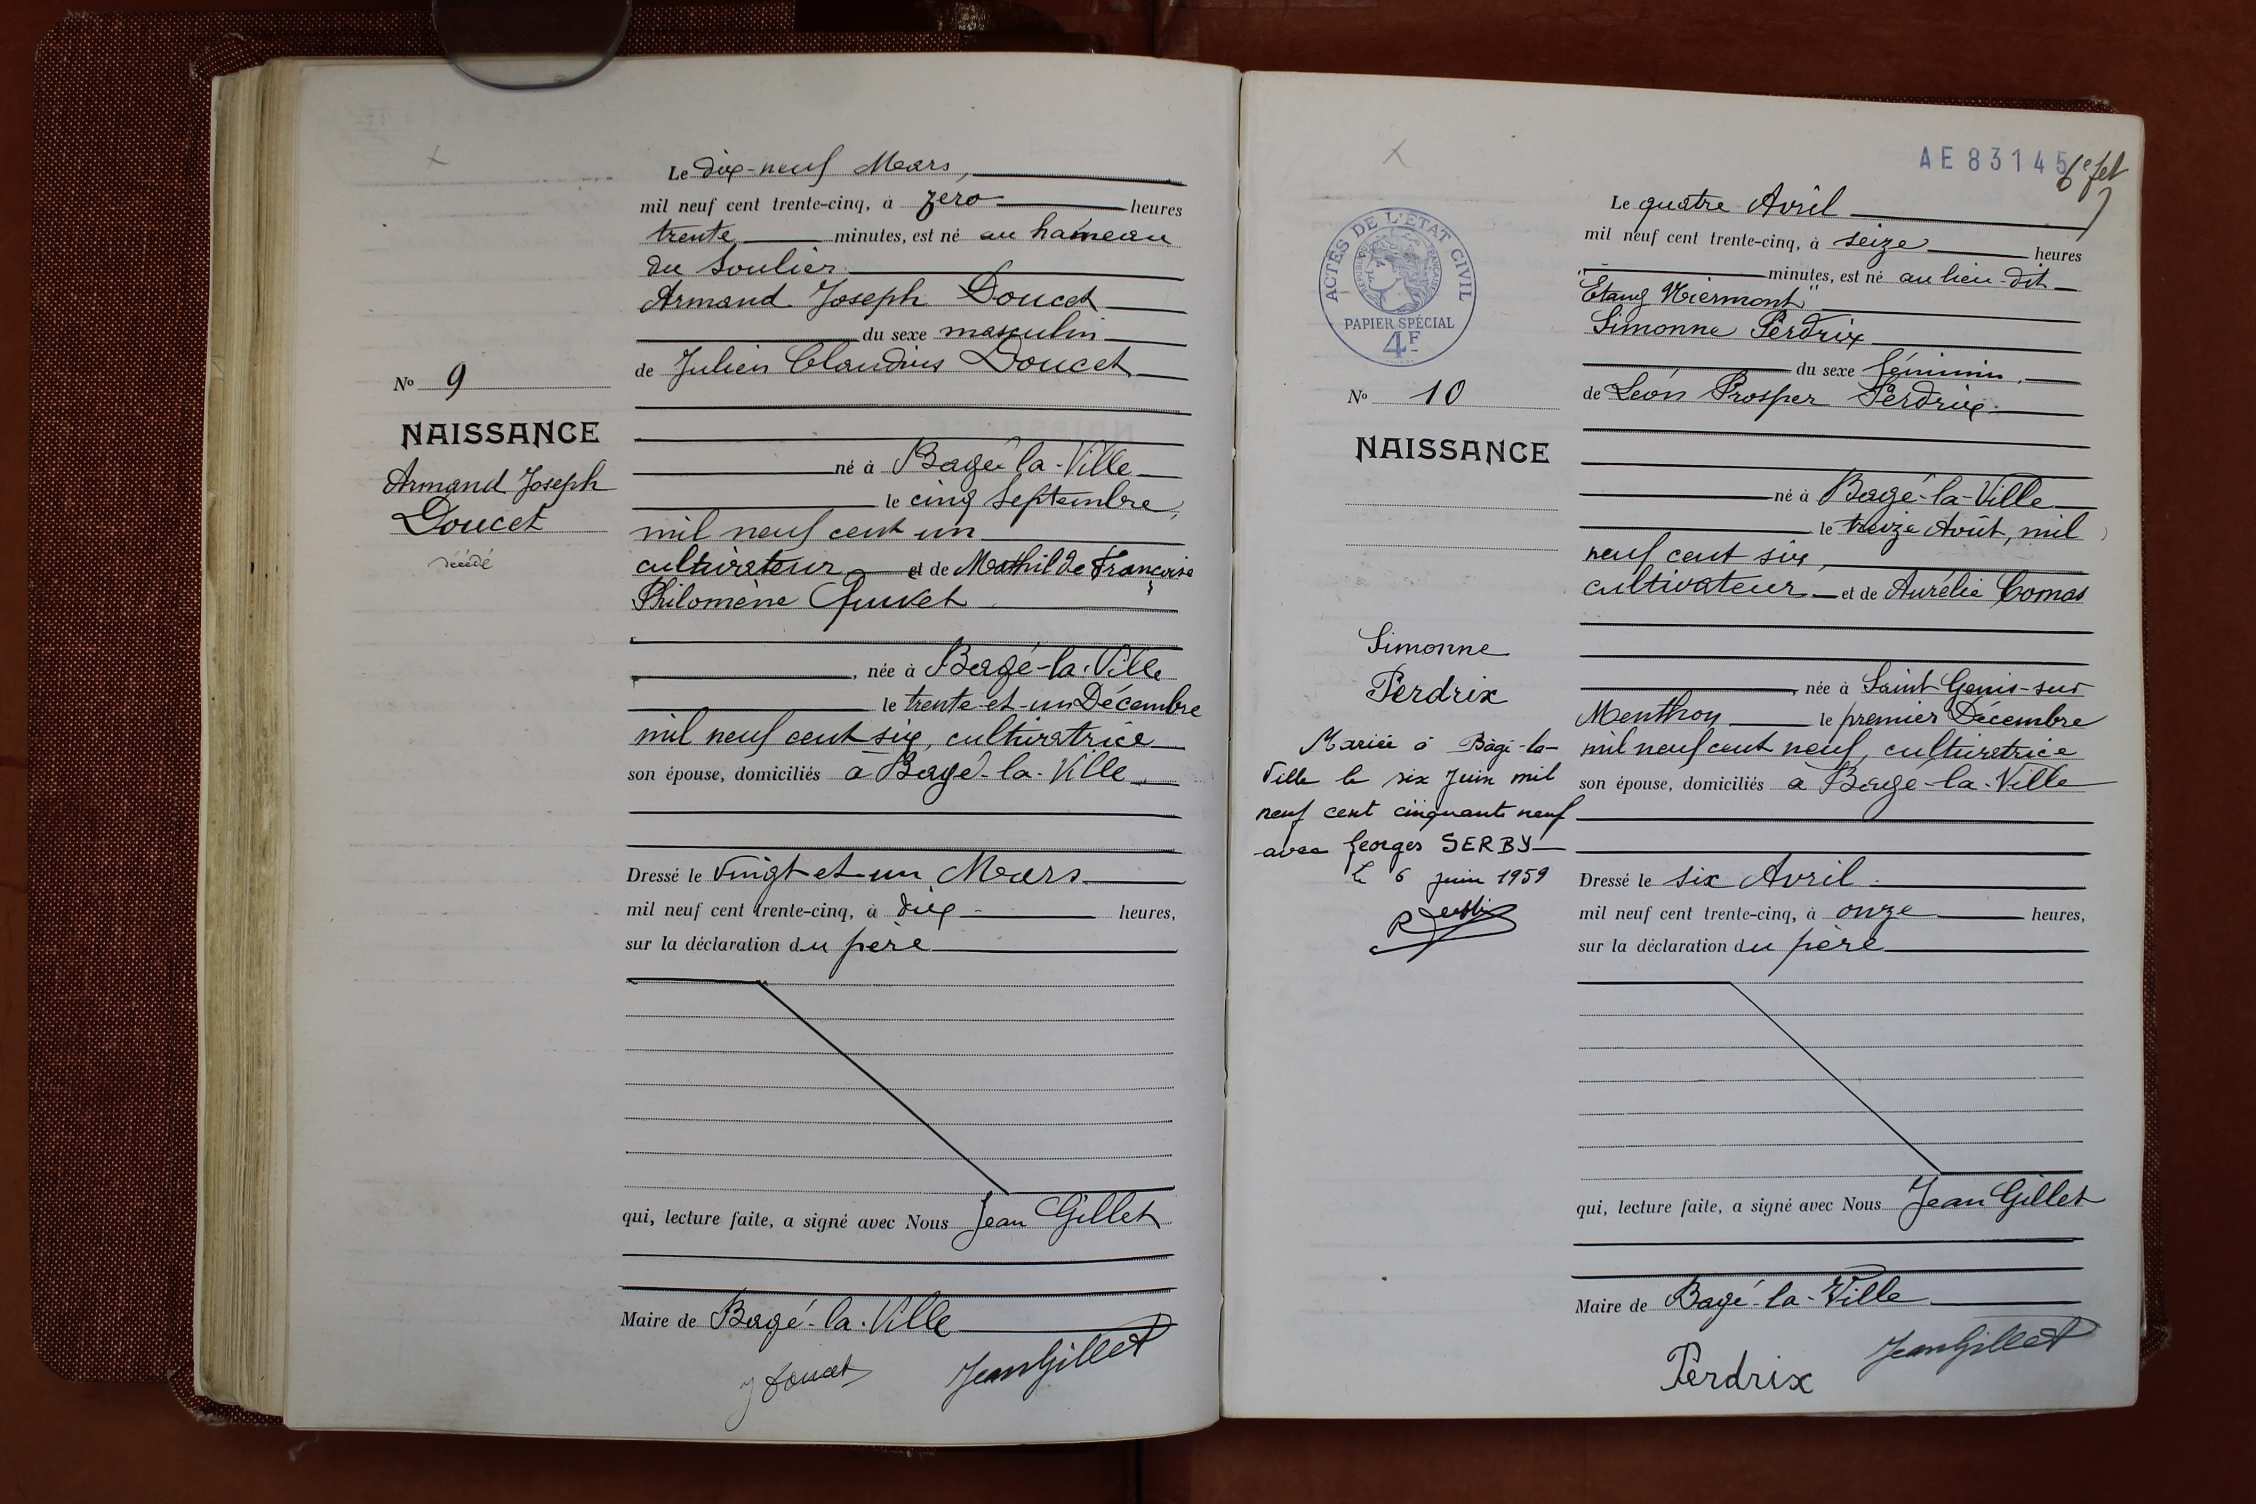 Le dix-neuf Mars,
mil neuf cent trente-cinq, à zéro heures
trente minutes, est né au hameau
du Soulier
Armand Joseph Doucet
du sexe masculin
de Julien Claudius Doucet
N° 9
NAISSANCE
Armand Joseph
Doucet
décédé
né à Bagé-la-Ville
le cinq Septembre,
mil neuf cent un
cultivateur et de Mathilde Françoise
Philomène
née à Bagé-la-Ville
le trente-et-un Décembre
mil neuf cent six, cultivatrice
son épouse, domiciliés à Bagé-la-Ville
Dressé le vingt et un Mars
mil neuf cent trente-cinq, à dix heures,
sur la déclaration du père
qui, lecture faite, a signé avec Nous Jean Gillet
Maire de Bagé-la-Ville
J Doucet JeanGillet
AE 83145
6e fet
Le quatre Avril
mil neuf cent trente-cinq, à seize heures
minutes, est né au lieu-dit
"Etang Miermont"
Simonne Perdrix
du sexe féminin,
de Léon Prosper Perdrix
ACTES DE L'ETAT CIVIL
REPUBLIQUE FRANÇAISE
PAPIER SPÉCIAL
4F
N° 10
NAISSANCE
né à Bagé-la-Ville
le treize Août, mil
neuf cent six,
cultivateur et de Aurélie Comas
née à Saint Genis-sur
Menthon le premier Décembre
mil neuf cent neuf, cultivatrice
son épouse, domiciliés à Bagé-la-Ville
Simonne
Perdrix
Mariée à Bâgé-la-
Ville le six Juin mil
neuf cent cinquante neuf
avec Georges SERBY
le 6 juin 1959
Dressé le six Avril
mil neuf cent trente-cinq, à onze heures,
sur la déclaration du père
qui, lecture faite, a signé avec Nous Jean Gillet
Maire de Bagé-la-Ville
Perdrix JeanGillet